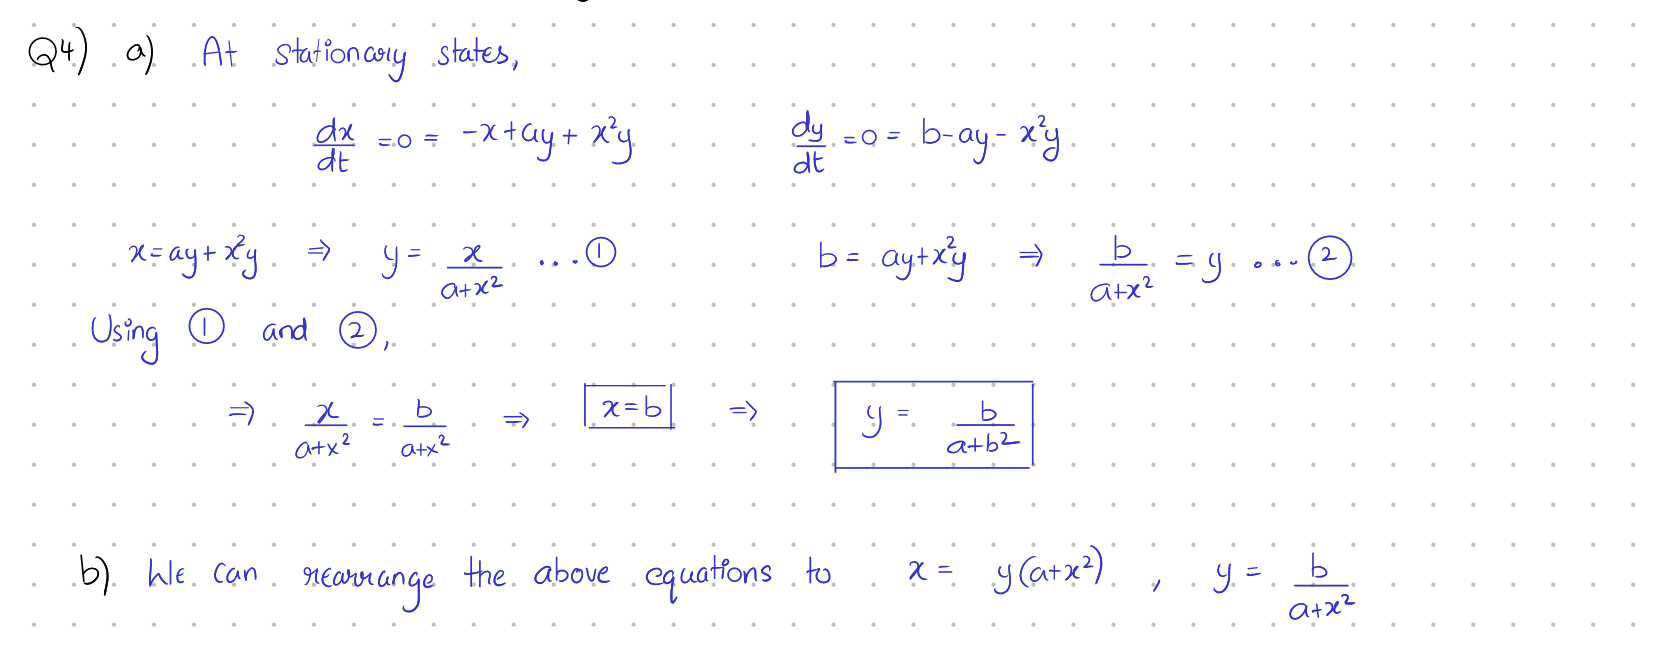 Q4) a) At stationary states,
dx/dt = 0 = -x + ay + x²y    dy/dt = 0 = b - ay - x²y
x = ay + x²y ⇒ y = x/(a+x²) ...①    b = ay + x²y ⇒ b/(a+x²) = y ...②
Using ① and ②,
⇒ x/(a+x²) = b/(a+x²) ⇒ x = b ⇒ y = b/(a+b²)
b) We can rearrange the above equations to x = y(a+x²) , y = b/(a+x²)